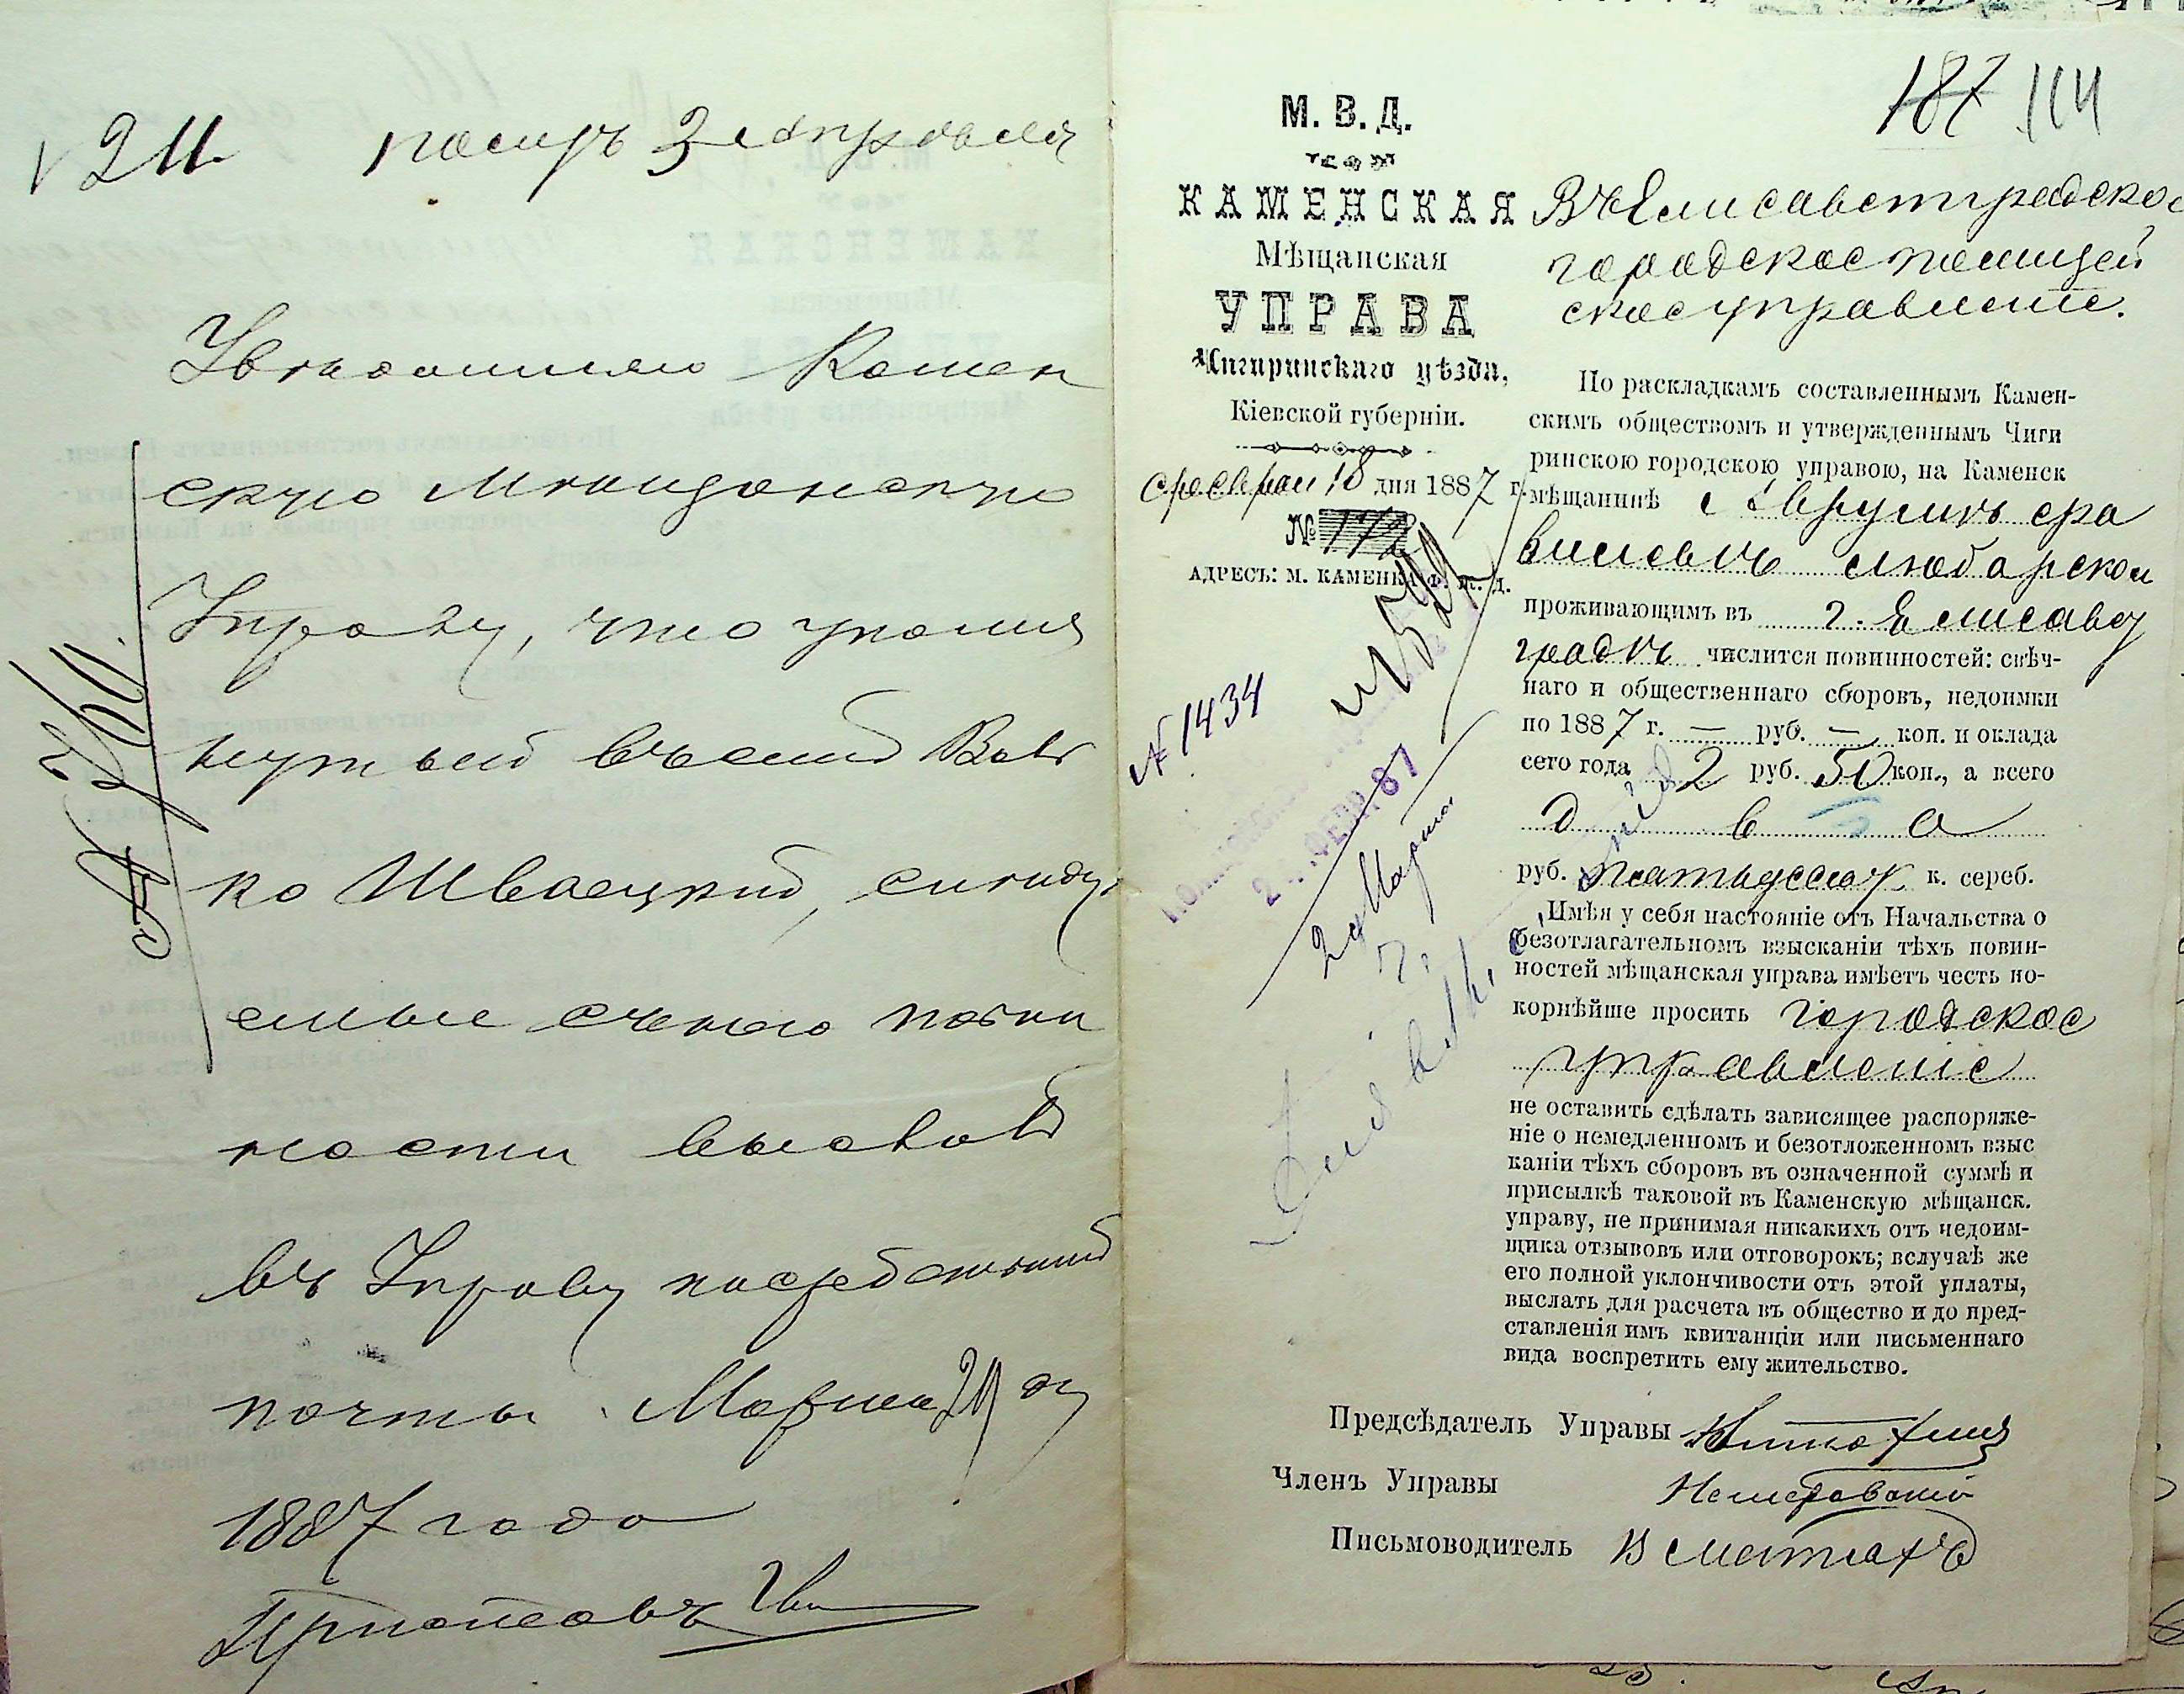 211. 3 апрѣля
Увѣдомляю Камен
скую Мѣщанскую
Управу, что упомя
нутый въ семъ Вол
ко Шваецкий, слѣду
емые съ него повин
ности выслалъ
въ Управу посредствомъ
почты. Марта 29 дн
1887 года
№ 260.
187 114
М. В. Д.
КАМЕНСКАЯ
Мѣщанская
УПРАВА
Чигиринскаго уѣзда,
Кіевской губерніи.
февраля 18 дня 1887 г.
№ 172
АДРЕСЪ: М. КАМЕНКА Ф. Ж. Д.
№ 1434
2 ФЕВР. 87
29 Марта
Въ Елисаветградское
городское полицей
ское управленіе.
По раскладкамъ составленнымъ Камен-
скимъ обществомъ и утвержденнымъ Чиги
ринскою городскою управою, на Каменск
мѣщанинѣ
проживающимъ въ г. Елисавет
градѣ числится повинностей: свѣч-
наго и общественнаго сборовъ, недоимки
по 1887 г. — руб. — коп. и оклада
сего года 2 руб. 50 коп., а всего
два
руб. пятьдесят к. сереб.
Имѣя у себя настояніе отъ Начальства о
безотлагательномъ взысканіи тѣхъ повин-
ностей мѣщанская управа имѣетъ честь по-
корнѣйше просить городское
управленіе
не оставить сдѣлать зависящее распоряже-
ніе о немедленномъ и безотложенномъ взыс
каніи тѣхъ сборовъ въ означенной суммѣ и
присылкѣ таковой въ Каменскую мѣщанск.
управу, не принимая никакихъ отъ недоим-
щика отзывовъ или отговорокъ; вслучаѣ же
его полной уклончивости отъ этой уплаты,
выслать для расчета въ общество и до пред-
ставленія имъ квитанціи или письменнаго
вида воспретить ему жительство.
Предсѣдатель Управы
Членъ Управы
Письмоводитель